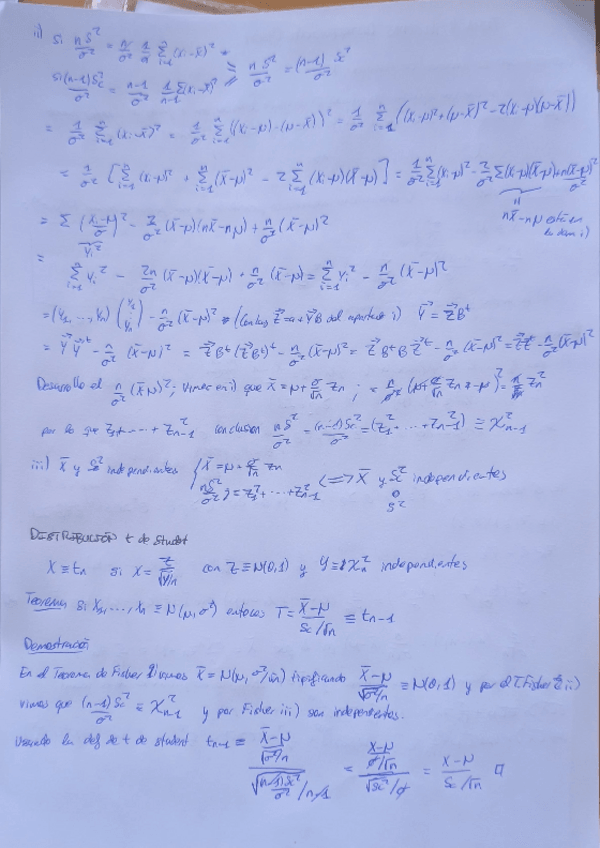 ii) Si nS²/σ² = n/σ² 1/n Σ_{i=1}^n (xᵢ-x̄)² *
Si (n-1)Sc²/σ² = n-1/σ² 1/n-1 Σ(xᵢ-x̄)² // nS²/σ² = (n-1)/σ² Sc²
= 1/σ² Σ_{i=1}^n (xᵢ-x̄)² = 1/σ² Σ_{i=1}^n ((xᵢ-μ)-(μ-x̄))² = 1/σ² Σ_{i=1}^n ((xᵢ-μ)²+(μ-x̄)²-2(xᵢ-μ)(μ-x̄))
= 1/σ² [Σ_{i=1}^n (xᵢ-μ)² + Σ_{i=1}^n (x̄-μ)² - 2Σ_{i=1}^n (xᵢ-μ)(x̄-μ)] = 1/σ² Σ_{i=1}^n (xᵢ-μ)² - 2/σ² Σ(xᵢ-μ)(x̄-μ)+n(x̄-μ)²/σ²
= Σ (xᵢ-μ/σ)² - 2/σ² (x̄-μ)(nx̄-nμ) + n/σ² (x̄-μ)² nx̄-nμ
Yᵢ²
= Σ_{i=1}^n Yᵢ² - 2n/σ² (x̄-μ)(x̄-μ) + n/σ² (x̄-μ) = Σ_{i=1}^n Yᵢ² - n/σ² (x̄-μ)²
= (Y₁, ..., Yₙ) (Y₁ ⋮ Yₙ) - n/σ² (x̄-μ)² * (Con las Z⃗=a+Y⃗B del apartado i) Y⃗ = Z⃗Bᵗ
= Y⃗ Y⃗ᵗ - n/σ² (x̄-μ)² = Z⃗Bᵗ(Z⃗Bᵗ)ᵗ - n/σ² (x̄-μ)² = Z⃗BᵗB Z⃗ᵗ - n/σ² (x̄-μ)² = Z⃗Z⃗ᵗ - n/σ² (x̄-μ)²
Desarrollo el n/σ² (x̄-μ)²; vimos en i) que x̄=μ+σ/√n Zn; = n/σ² (μ+σ/√n Zn-μ)² = Zn²
por lo que Z₁+...+Zn-1² conclusion nS²/σ² = (n-1)Sc²/σ² = (Z₁²+...+Zn-1²) ≡ χ²n-1
iii) x̄ y Sc² independientes { x̄ = μ+σ/√n Zn
nS²/σ² = Z₁²+...+Zn-1² <=> x̄ y Sc² independientes
o
S²
DISTRIBUCIÓN t de student
X≡tn si X= Z/√Y/n con Z≡N(0,1) y Y≡χn² independientes
Teorema Si X₁, ..., Xn ≡ N(μ, σ²) entonces T= x̄-μ/Sc/√n ≡ tn-1
Demostración
En el Teorema de Fisher vimos x̄ = N(μ, σ²/n) tipificando x̄-μ/√σ²/n ≡ N(0,1) y por el T Fisher ii)
vimos que (n-1)Sc²/σ² ≡ χ²n-1 y por Fisher iii) son independientes.
Usando la def de t de student tn-1 ≡ x̄-μ/√σ²/n / √(n-1)Sc²/σ²/n-1 = x-μ/σ/√n / √Sc²/σ = x-μ/Sc/√n □